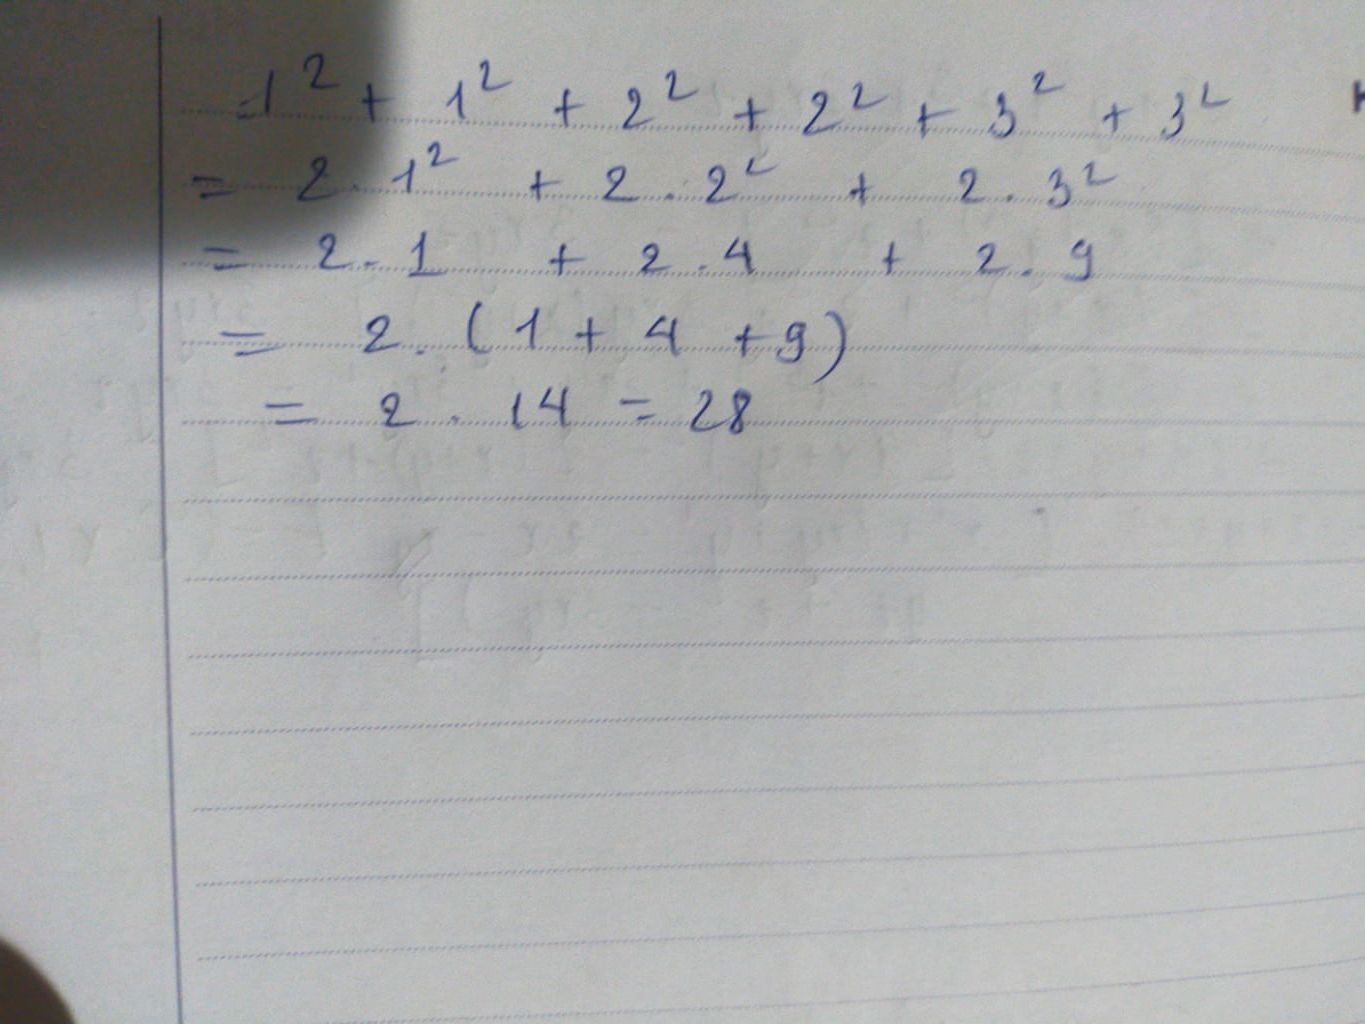 1² + 1² + 2² + 2² + 3² + 3²
= 2 . 1² + 2 . 2² + 2 . 3²
= 2 . 1 + 2 . 4 + 2 . 9
= 2 . ( 1 + 4 + 9 )
= 2 . 14 = 28